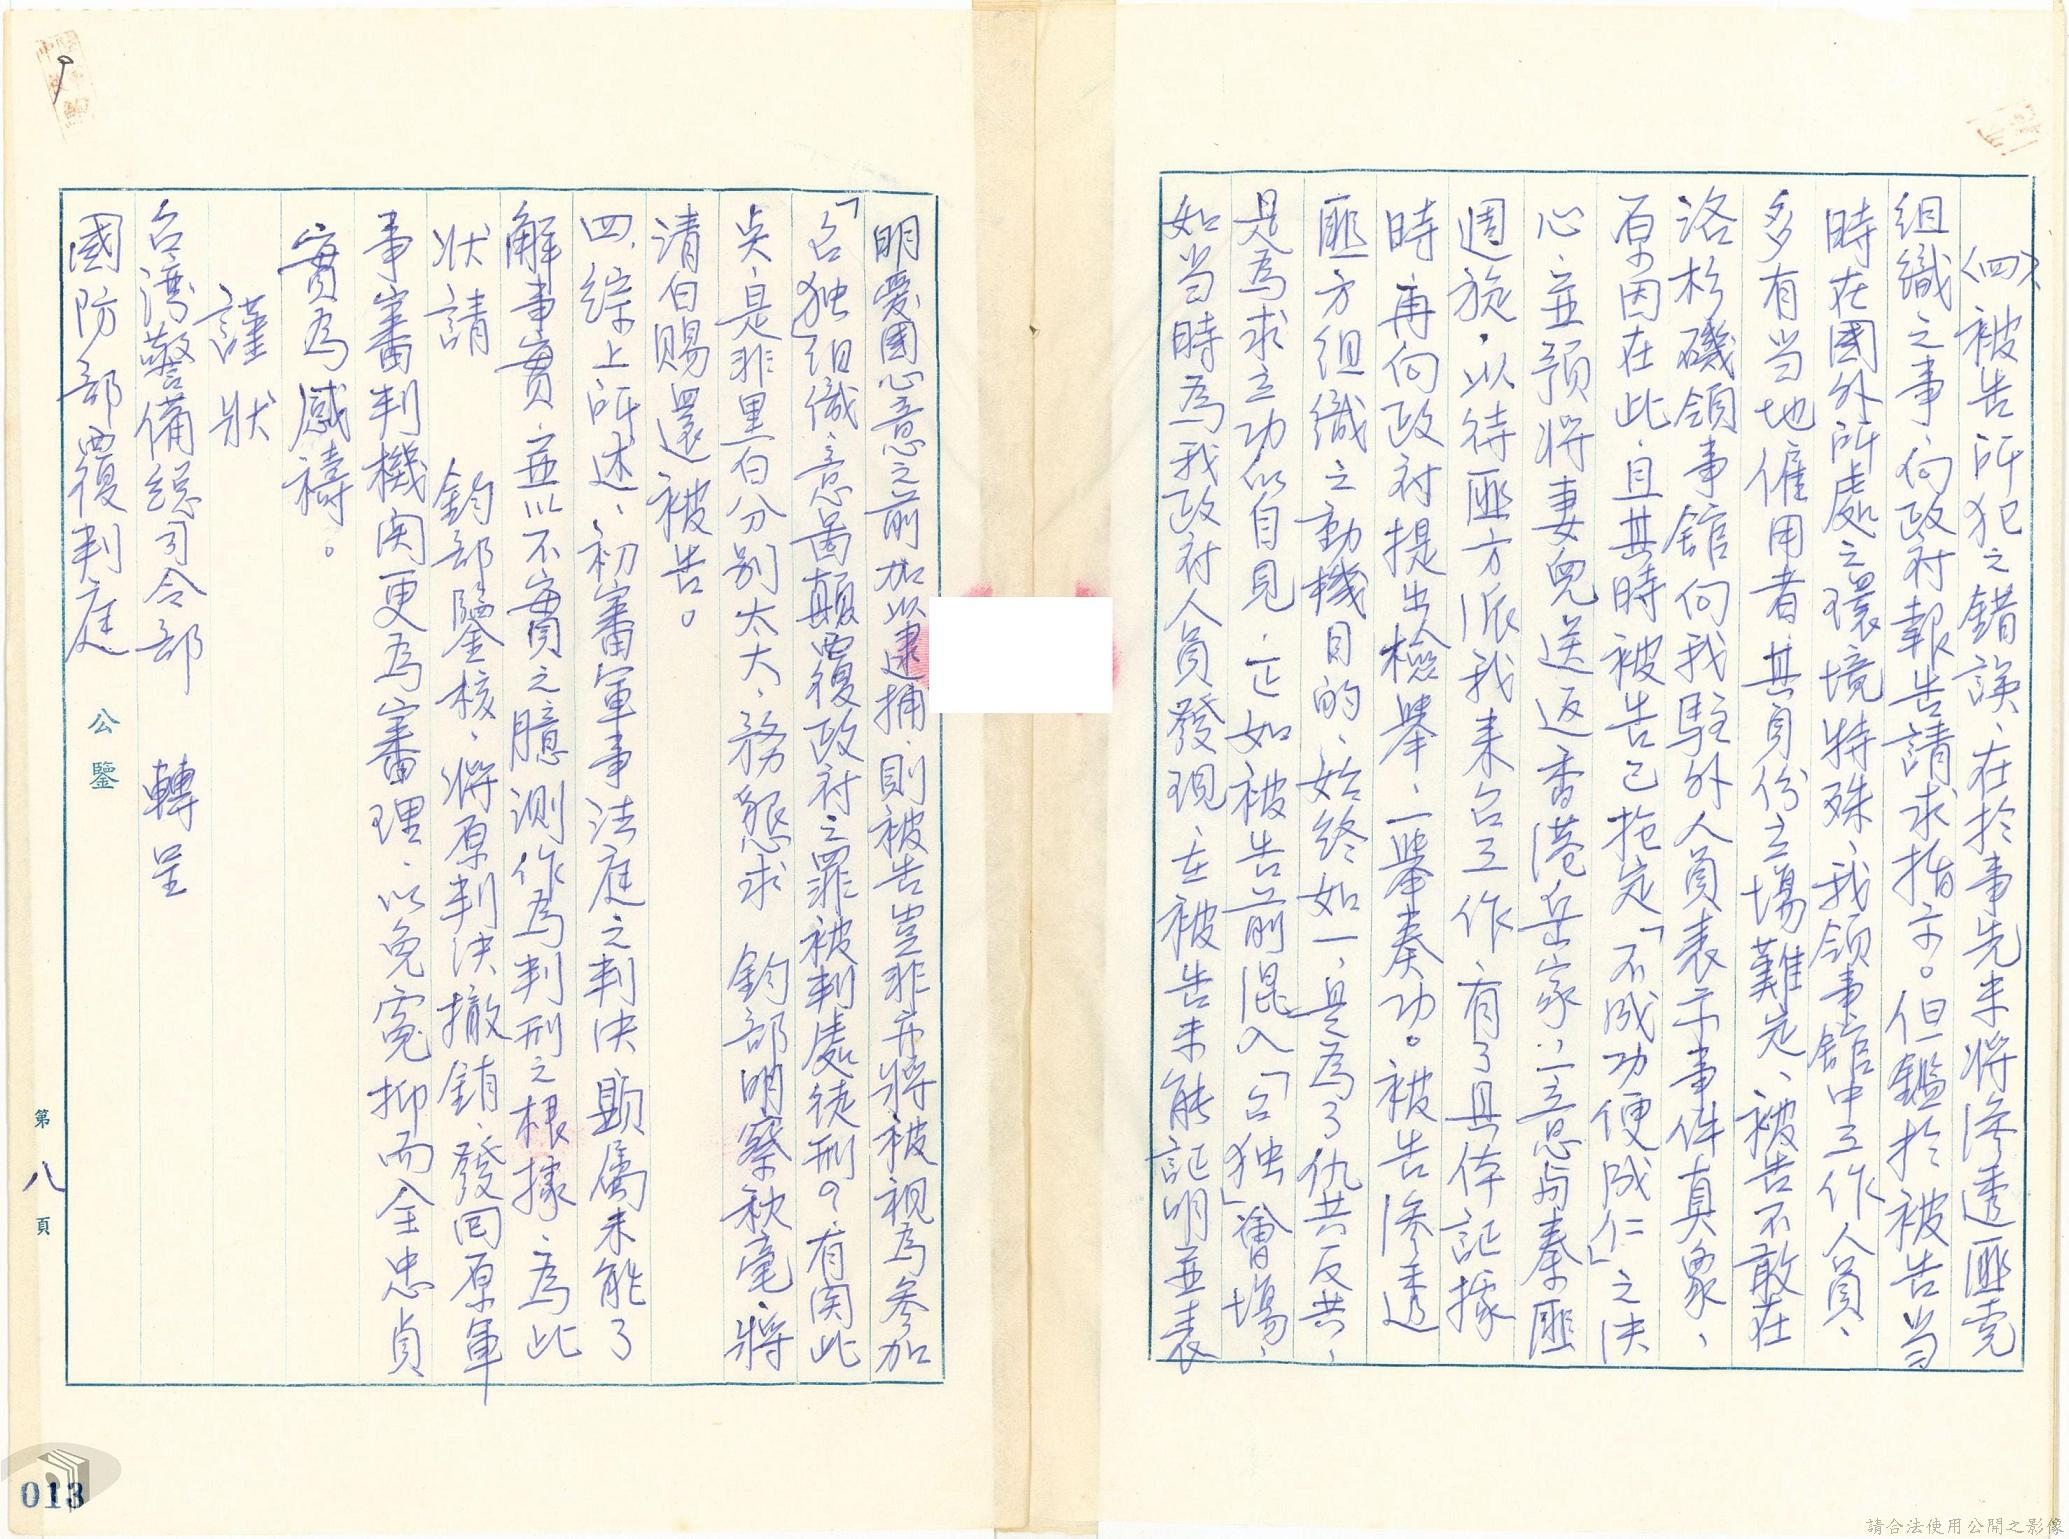 (四)、被告所犯之錯誤、在於事先未將滲透匪党
組織之事、向政府報告請求指示。但鑑於被告当
時在國外所處之環境特殊、我領事館中工作人員、
多有当地僱用者、其身份立場難定、被告不敢在
洛杉磯領事館向我駐外人員表示事件真象、
原因在此、且其時被告已抱定「不成功便成仁」之決
心、並預將妻兒送返香港岳家、立意与秦匪
週旋、以待匪方派我來台工作、有了具体証據
時、再向政府提出檢舉、一舉奏功。被告滲透
匪方組織之動機目的、始終如一、是為了仇共反共、
是為求立功以自見、正如被告前混入「台独」會場、
如当時為我政府人員發現、在被告未能証明並表
明愛國心意之前加以逮捕、則被告豈非亦將被視為參加
「台独」組織、意啚顛覆政府之罪被判處徒刑？有関此
点、是非黑白分别太大、務懇求　鈞部明察秋毫、將
清白賜還被告。
四、綜上所述、初審軍事法庭之判決、顯属未能了
解事實、並以不實之臆測作為判刑之根據、為此
狀請　　鈞部鑒核、將原判決撤銷、發回原軍
事審判機関更為審理、以免寃抑而全忠貞
實為感禱。
謹狀
台湾警備総司令部　　轉呈
國防部覆判庭　公鑒
第八頁
013
請合法使用公開之影像